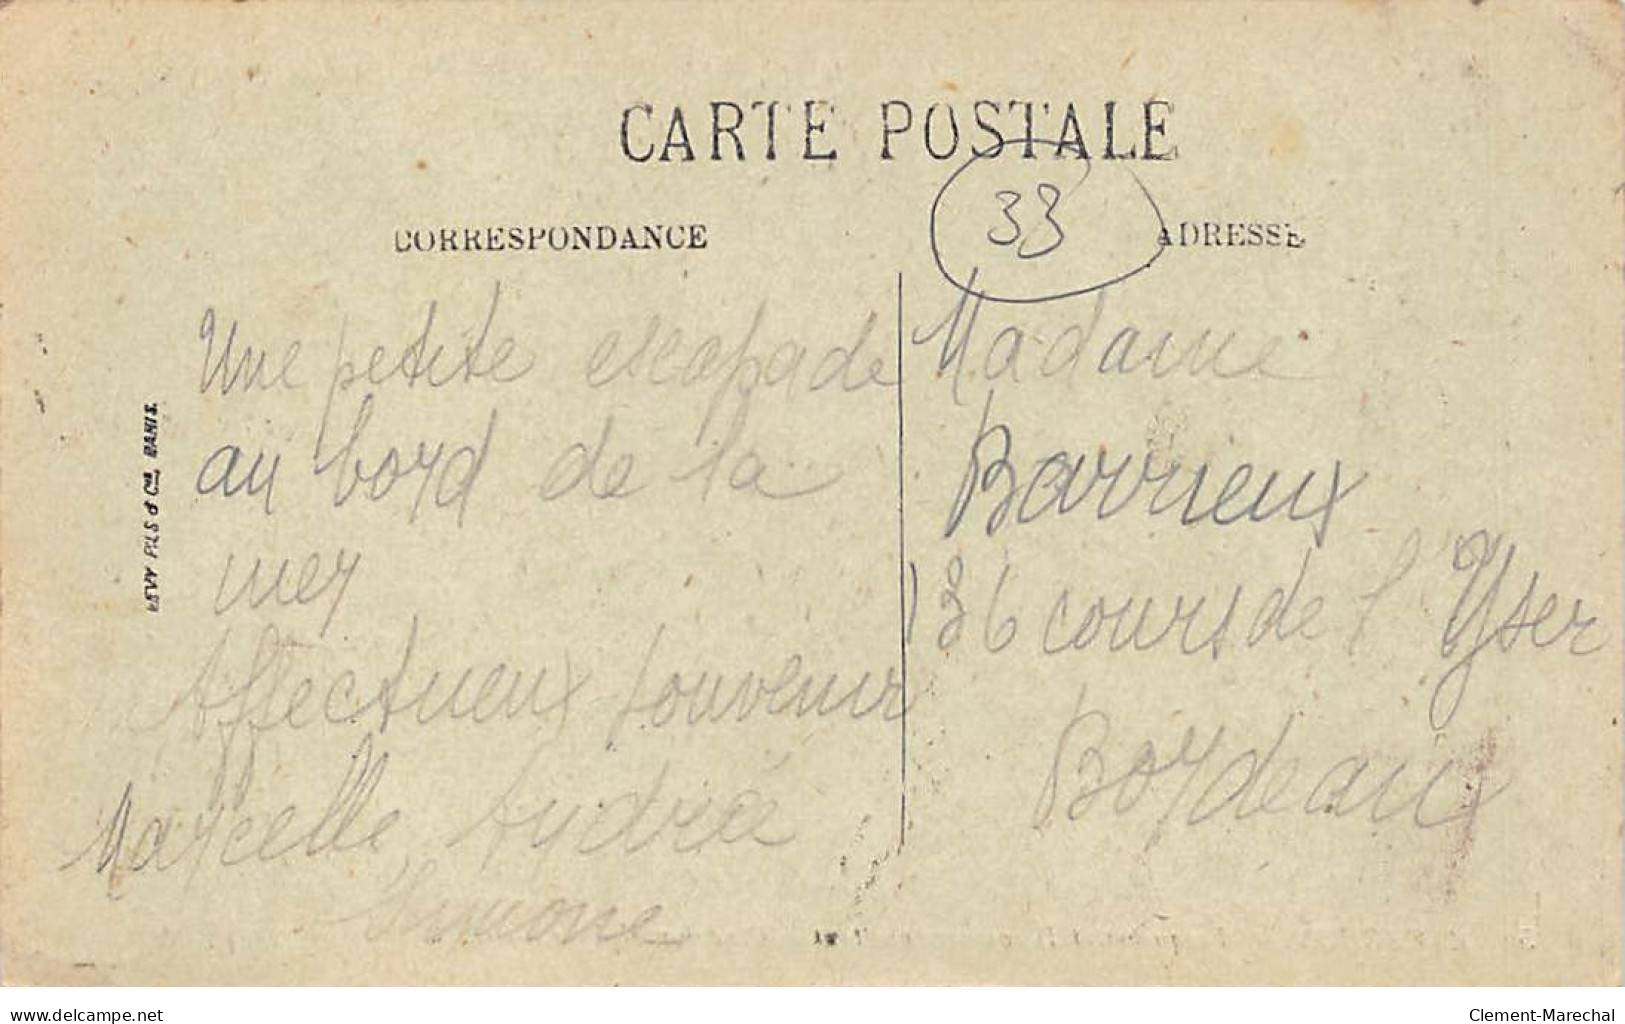 CARTE POSTALE
CORRESPONDANCE
33
ADRESSE
Une petite escapade
au bord de la
mer
Affectueux souvenir
Marcelle, Andrée
Simone
Madame
Barrieux
136 cours de l'Yser
Bordeaux
LEVY FILS & Cie, PARIS.
www.delcampe.net
Clement-Marechal